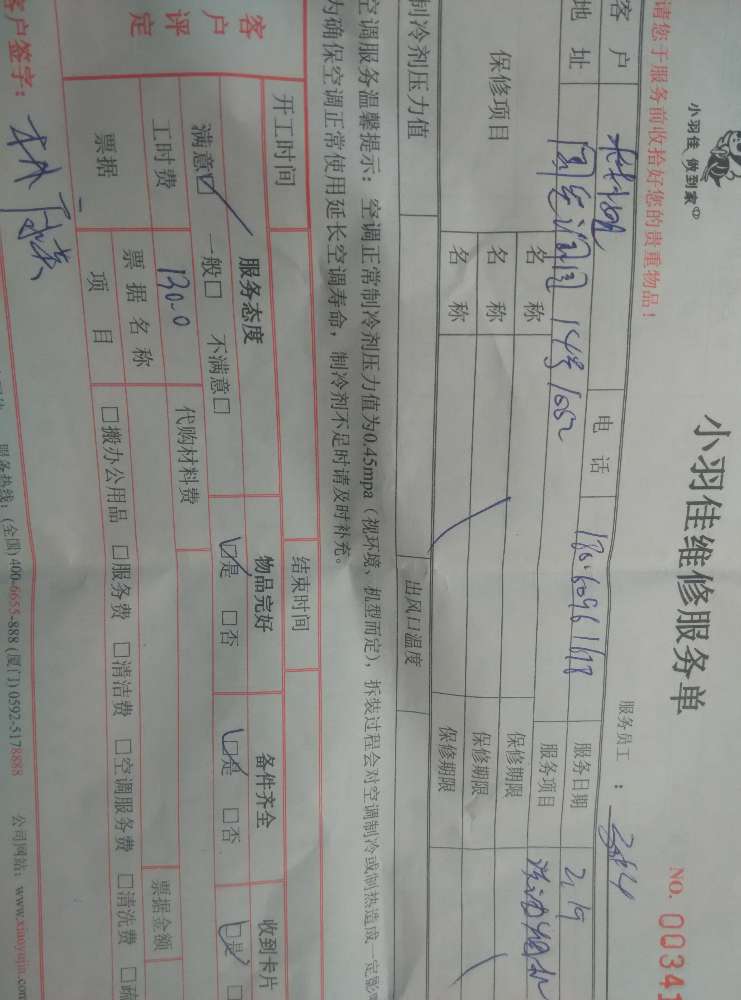 小羽佳 做到家
小羽佳维修服务单
NO. 00341
请您于服务前收拾好您的贵重物品！
服务员工：
客户
电话
服务日期 2.19
地址 14号1052
服务项目
保修项目
名称 保修期限
名称 保修期限
名称 保修期限
制冷剂压力值
出风口温度
空调服务温馨提示：空调正常制冷剂压力值为0.45mpa（视环境，机型而定），拆装过程会对空调制冷或制热造成一定影
为确保空调正常使用延长空调寿命，制冷剂不足时请及时补充。
开工时间
结束时间
客户评定
服务态度 物品完好 备件齐全 收到卡片
满意☑ 一般□ 不满意□ ☑是 □否 ☑是 □否 ☑是 □
工时费 130.0 代购材料费
票据 票据名称 票据金额
项目 □搬办公用品 □服务费 □清洁费 □空调服务费 □清洗费 □疏
客户签字：
服务热线：(全国) 400-6655-888 (厦门) 0592-5178888 公司网站：www.xiaoyujia.com